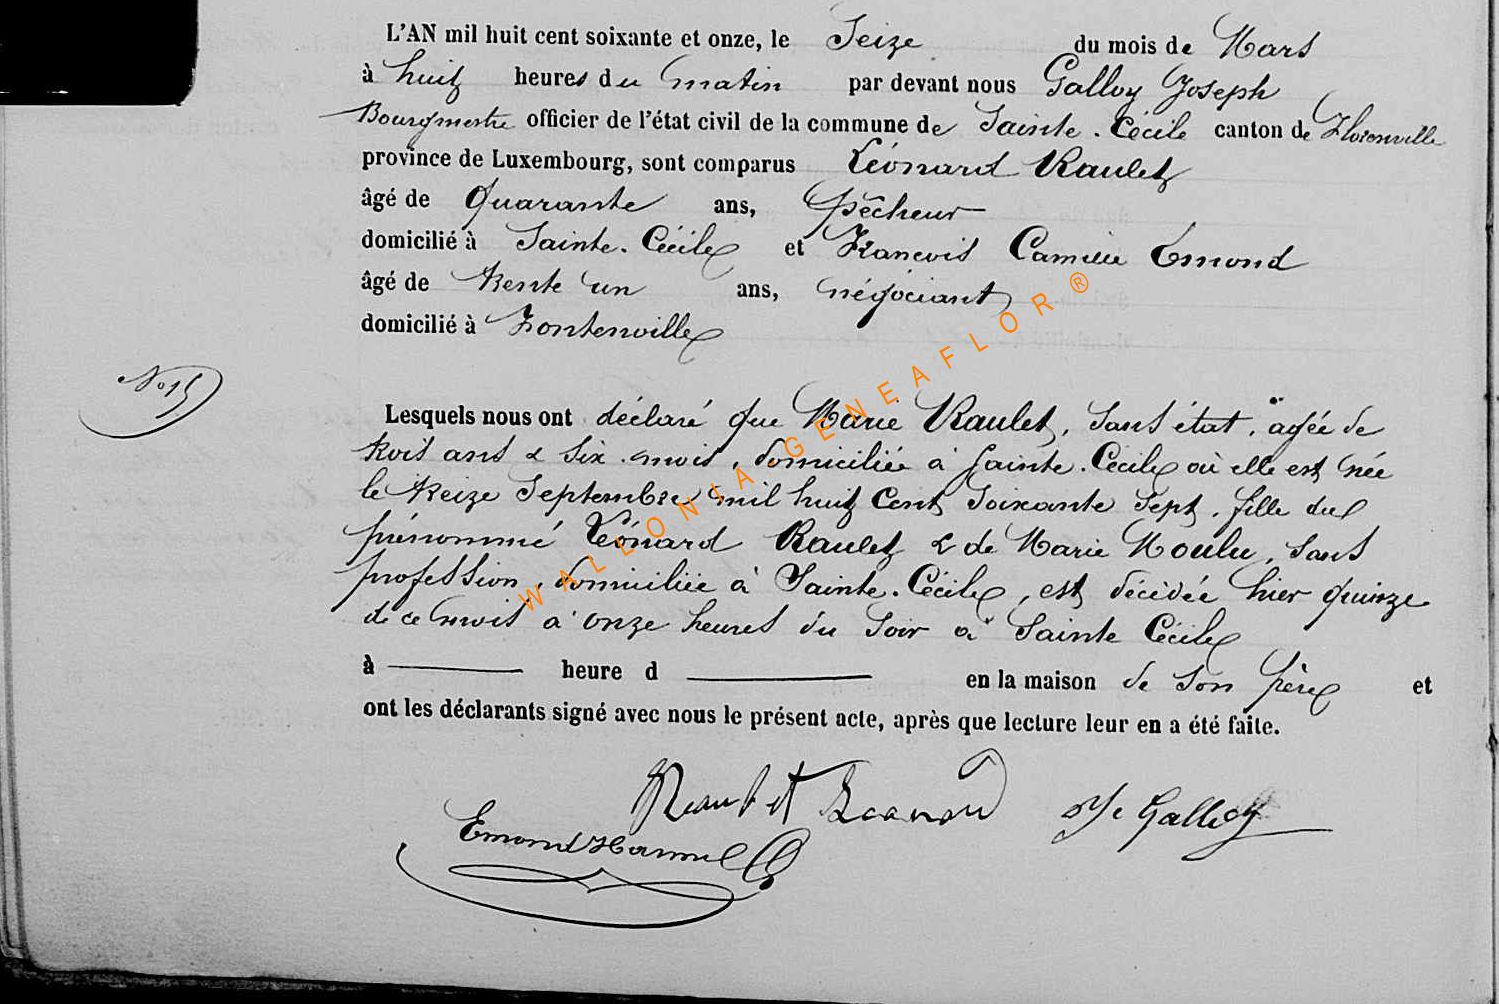 L'AN mil huit cent soixante et onze, le Seize du mois de Mars
à huit heures du matin par devant nous Galloy Joseph
Bourgmestre officier de l'état civil de la commune de Sainte-Cécile canton de Florenville
province de Luxembourg, sont comparus Léonard Raulet
âgé de quarante ans, pêcheur
domicilié à Sainte-Cécile et François Camille Emond
âgé de trente un ans, négociant
domicilié à Fontenoille
No 15
Lesquels nous ont déclaré que Marie Raulet, sans état, agée de
trois ans & six mois, domiciliée à Sainte-Cécile où elle est née
le treize Septembre mil huit Cent Soixante Sept, fille du
prénommé Léonard Raulet & de Marie Moulu, sans
profession, domiciliée à Sainte-Cécile, est décédée hier quinze
de ce mois à onze heures du soir à Sainte Cécile
à heure d en la maison de son père et
ont les déclarants signé avec nous le présent acte, après que lecture leur en a été faite.
Raulet Léonard
J Galloy
Emond
WALLONIA-GENEAFLOR®